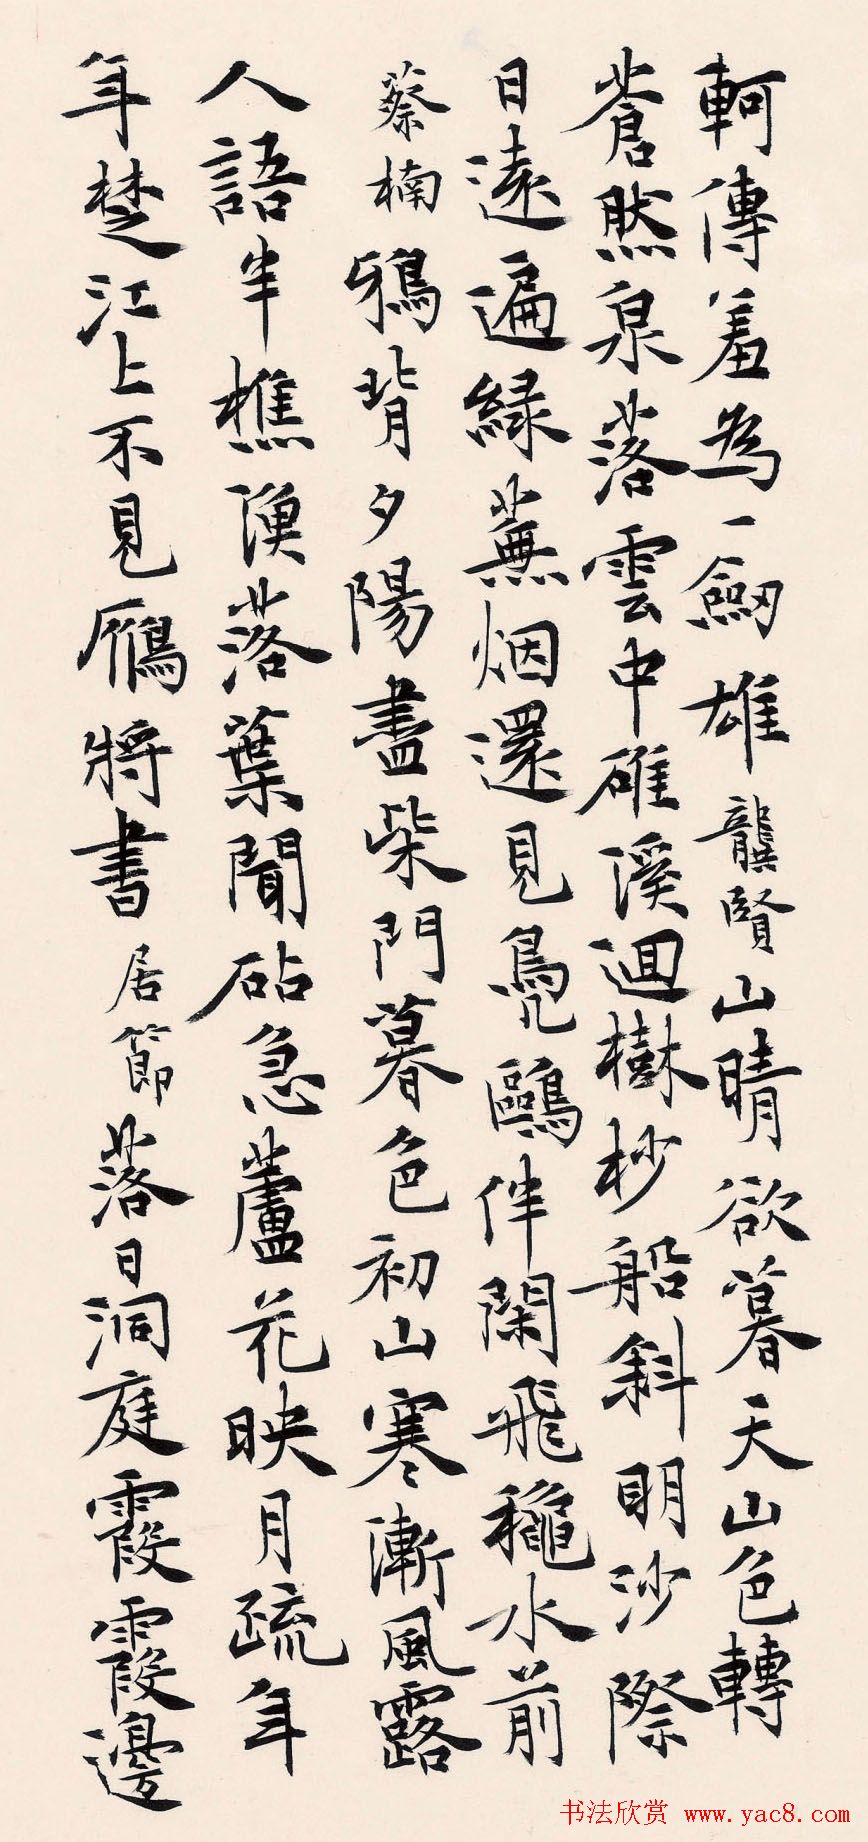 軻傳羞為一劒雄龔賢山晴欲暮天山色轉
蒼然泉落雲中碓溪迴樹杪船斜明沙際
日遠遍綠蕪烟還見鳧鷗伴閑飛龝水前
蔡楠鴉背夕陽盡柴門暮色初山寒漸風露
人語半樵漁落葉聞砧急蘆花映月疏年
年楚江上不見鴈將書居節落日洞庭霞霞邊
书法欣赏 www.yac8.com